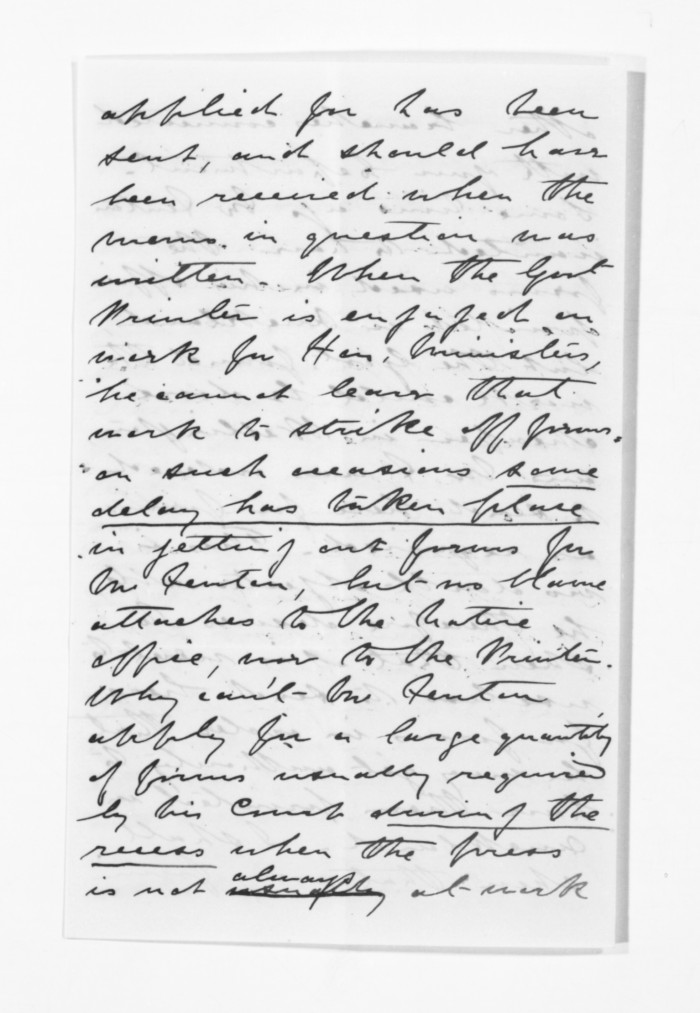 applied for has been
sent, and should have
been received when the
memo. in question was
written. When the Govt
Printer is engaged on
work for Hon. Ministers,
he cannot leave that
work to strike off forms.
on such occasions some
delay has taken place
in getting out forms for
Mr Fenton, but no blame
attaches to the Native
office, nor to the Printer.
Why can't Mr Fenton
apply for a large quantity
of forms usually required
by his Court during the
recess when the press
is not usually always at work